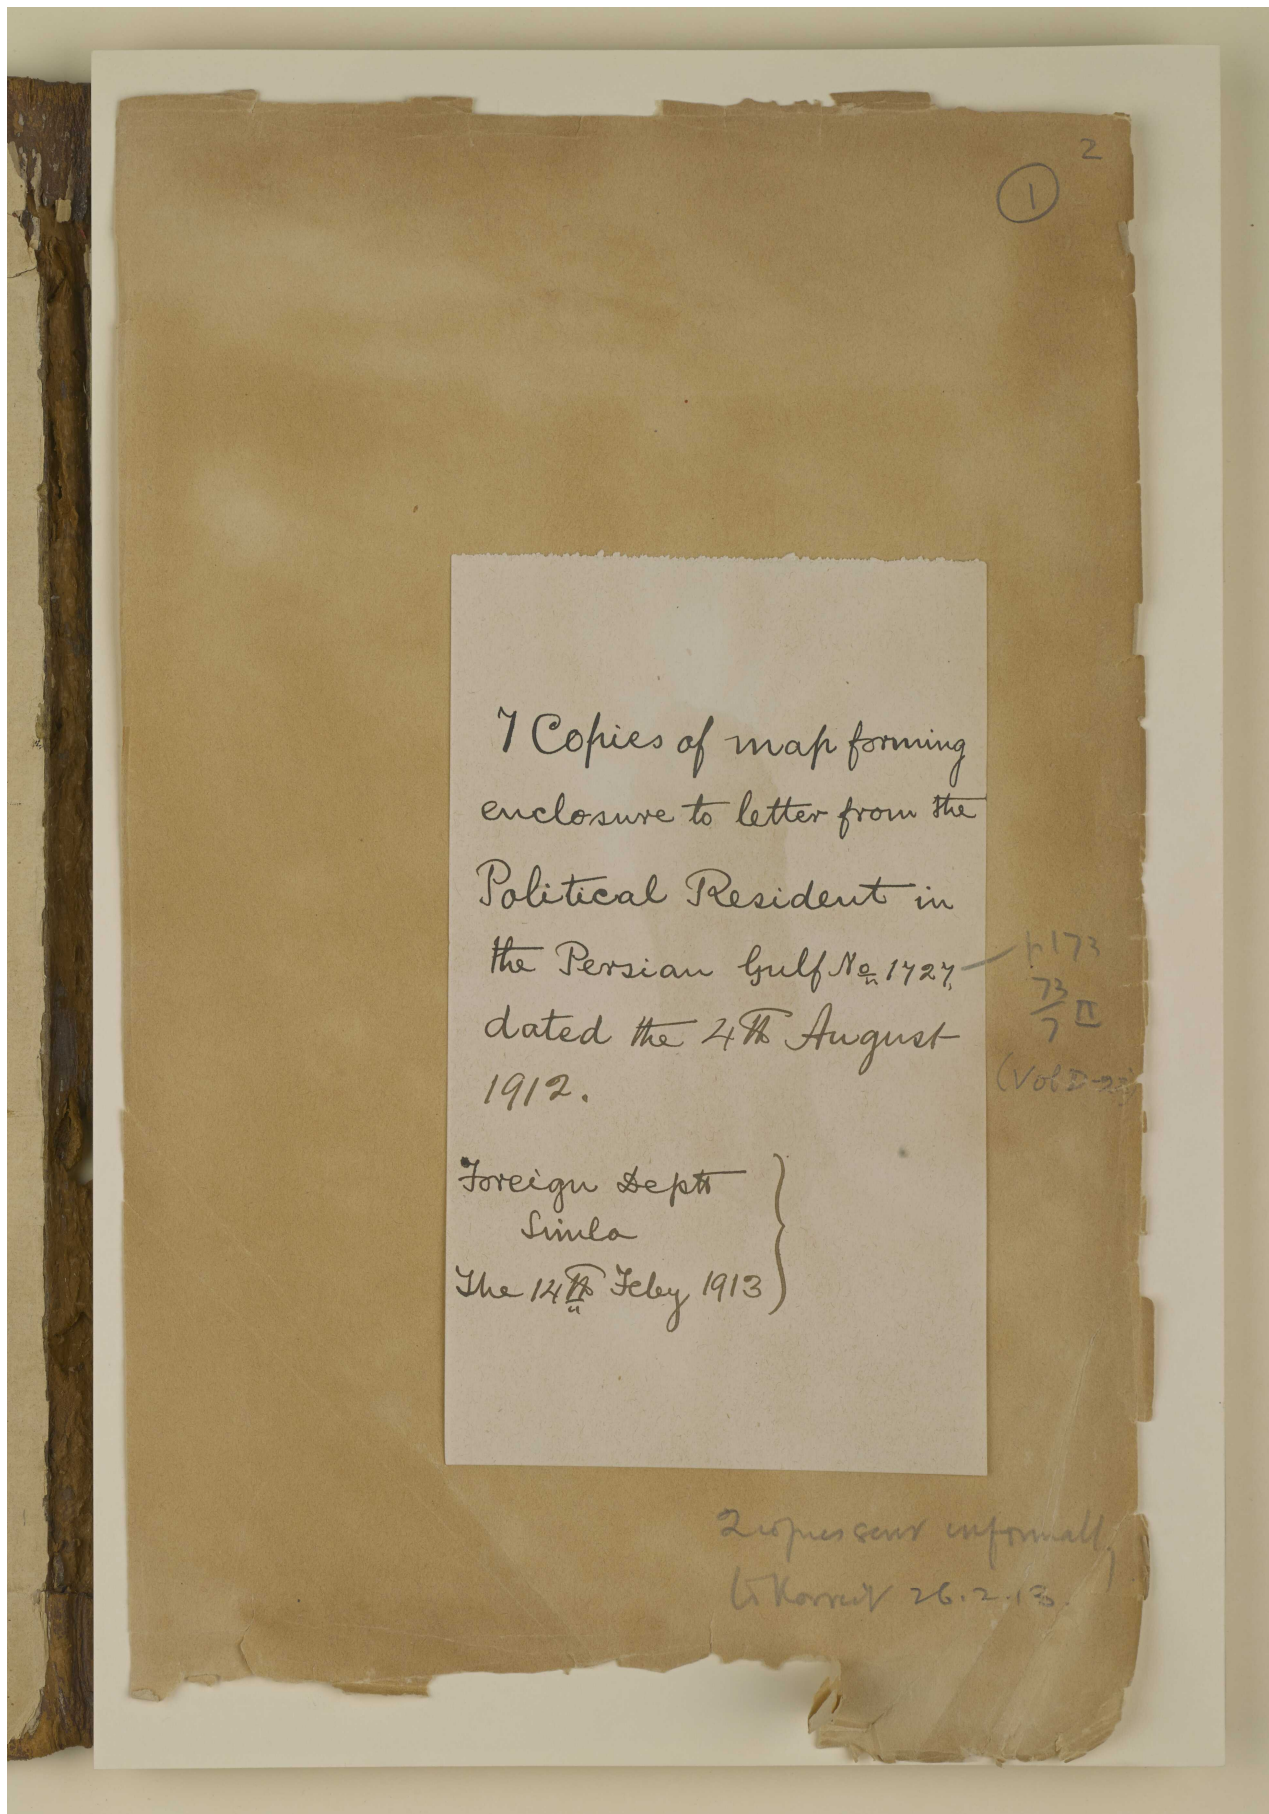 2
1
7 Copies of map forming
enclosure to letter from the
Political Resident in
the Persian Gulf No 1727,
dated the 4th August
1912.
p 173
73/7 II
(Vol I
Foreign Deptt
Simla
The 14th Feby 1913
2 copies sent informally
to Koweit 26.2.13.